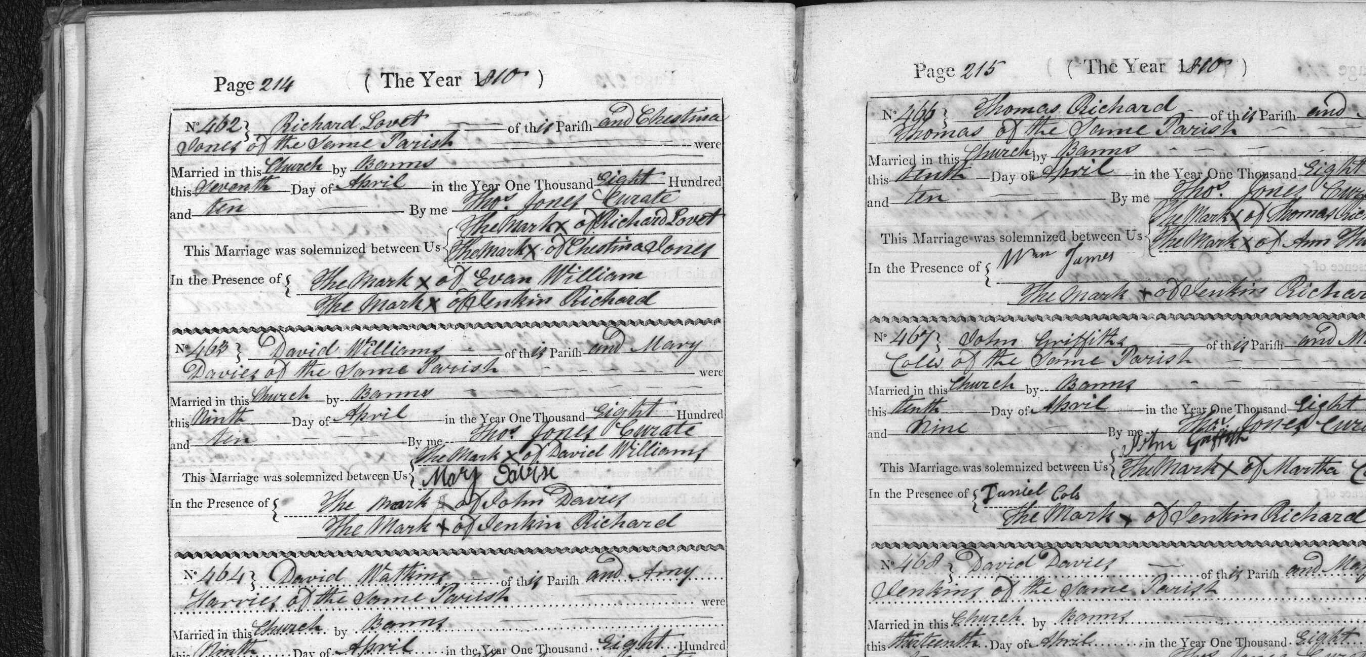 Page 214 ( The Year 1810 )
No. 462 } Richard Lovet of this Parish and Chestina
Jones of the Same Parish were
Married in this Church by Banns
this Seventh Day of April in the Year One Thousand Eight Hundred
and ten By me Thos. Jones Curate
The Mark X of Richard Lovet
This Marriage was solemnized between Us { The Mark X of Chestina Jones
In the Presence of { The Mark X of Evan William
The Mark X of Jenkin Richard
No. 463 } David Williams of this Parish and Mary
Davies of the Same Parish were
Married in this Church by Banns
this Ninth Day of April in the Year One Thousand Eight Hundred
and ten By me Thos. Jones Curate
The Mark X of David Williams
This Marriage was solemnized between Us { Mary
In the Presence of { The mark X of John Davies
The Mark X of Jenkin Richard
No. 464 } David Watkins of this Parish and Amy
Harries of the Same Parish were
Married in this Church by Banns
this Ninth Day of April in the Year One Thousand Eight Hundred
Page 215 ( The Year 1810 )
No. 466 } Thomas Richard of this Parish and
Thomas of the Same Parish
Married in this Church by Banns
this tenth Day of April in the Year One Thousand Eight
and ten By me Thos. Jones
The Mark X of Thomas
This Marriage was solemnized between Us { The Mark X of Ann
In the Presence of { Wm James
The Mark X of Jenkin
No. 467 } John Griffiths of this Parish and
Coles of the Same Parish
Married in this Church by Banns
this tenth Day of April in the Year One Thousand Eight
and Nine By me Thos. Jones
John Griffith
This Marriage was solemnized between Us { The Mark X of Martha
In the Presence of { Daniel Cols
The Mark X of Jenkin Richard
No. 468 } David Davies of this Parish and
Jenkins of the Same Parish
Married in this Church by Banns
this thirteenth Day of April in the Year One Thousand Eight